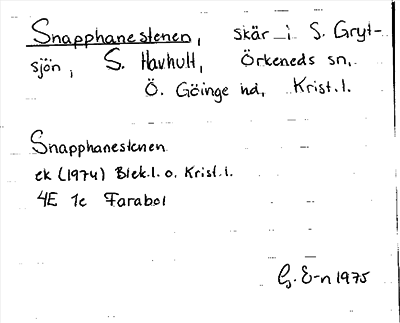 Snapphanestenen, skär i S. Gryt-
sjön, S. Havhult, Örkeneds sn,
Ö. Göinge hd, Krist. l.
Snapphanestenen
ek (1974) Blek. l. o. Krist. l.
4E 1c Farabol
G. E-n 1975